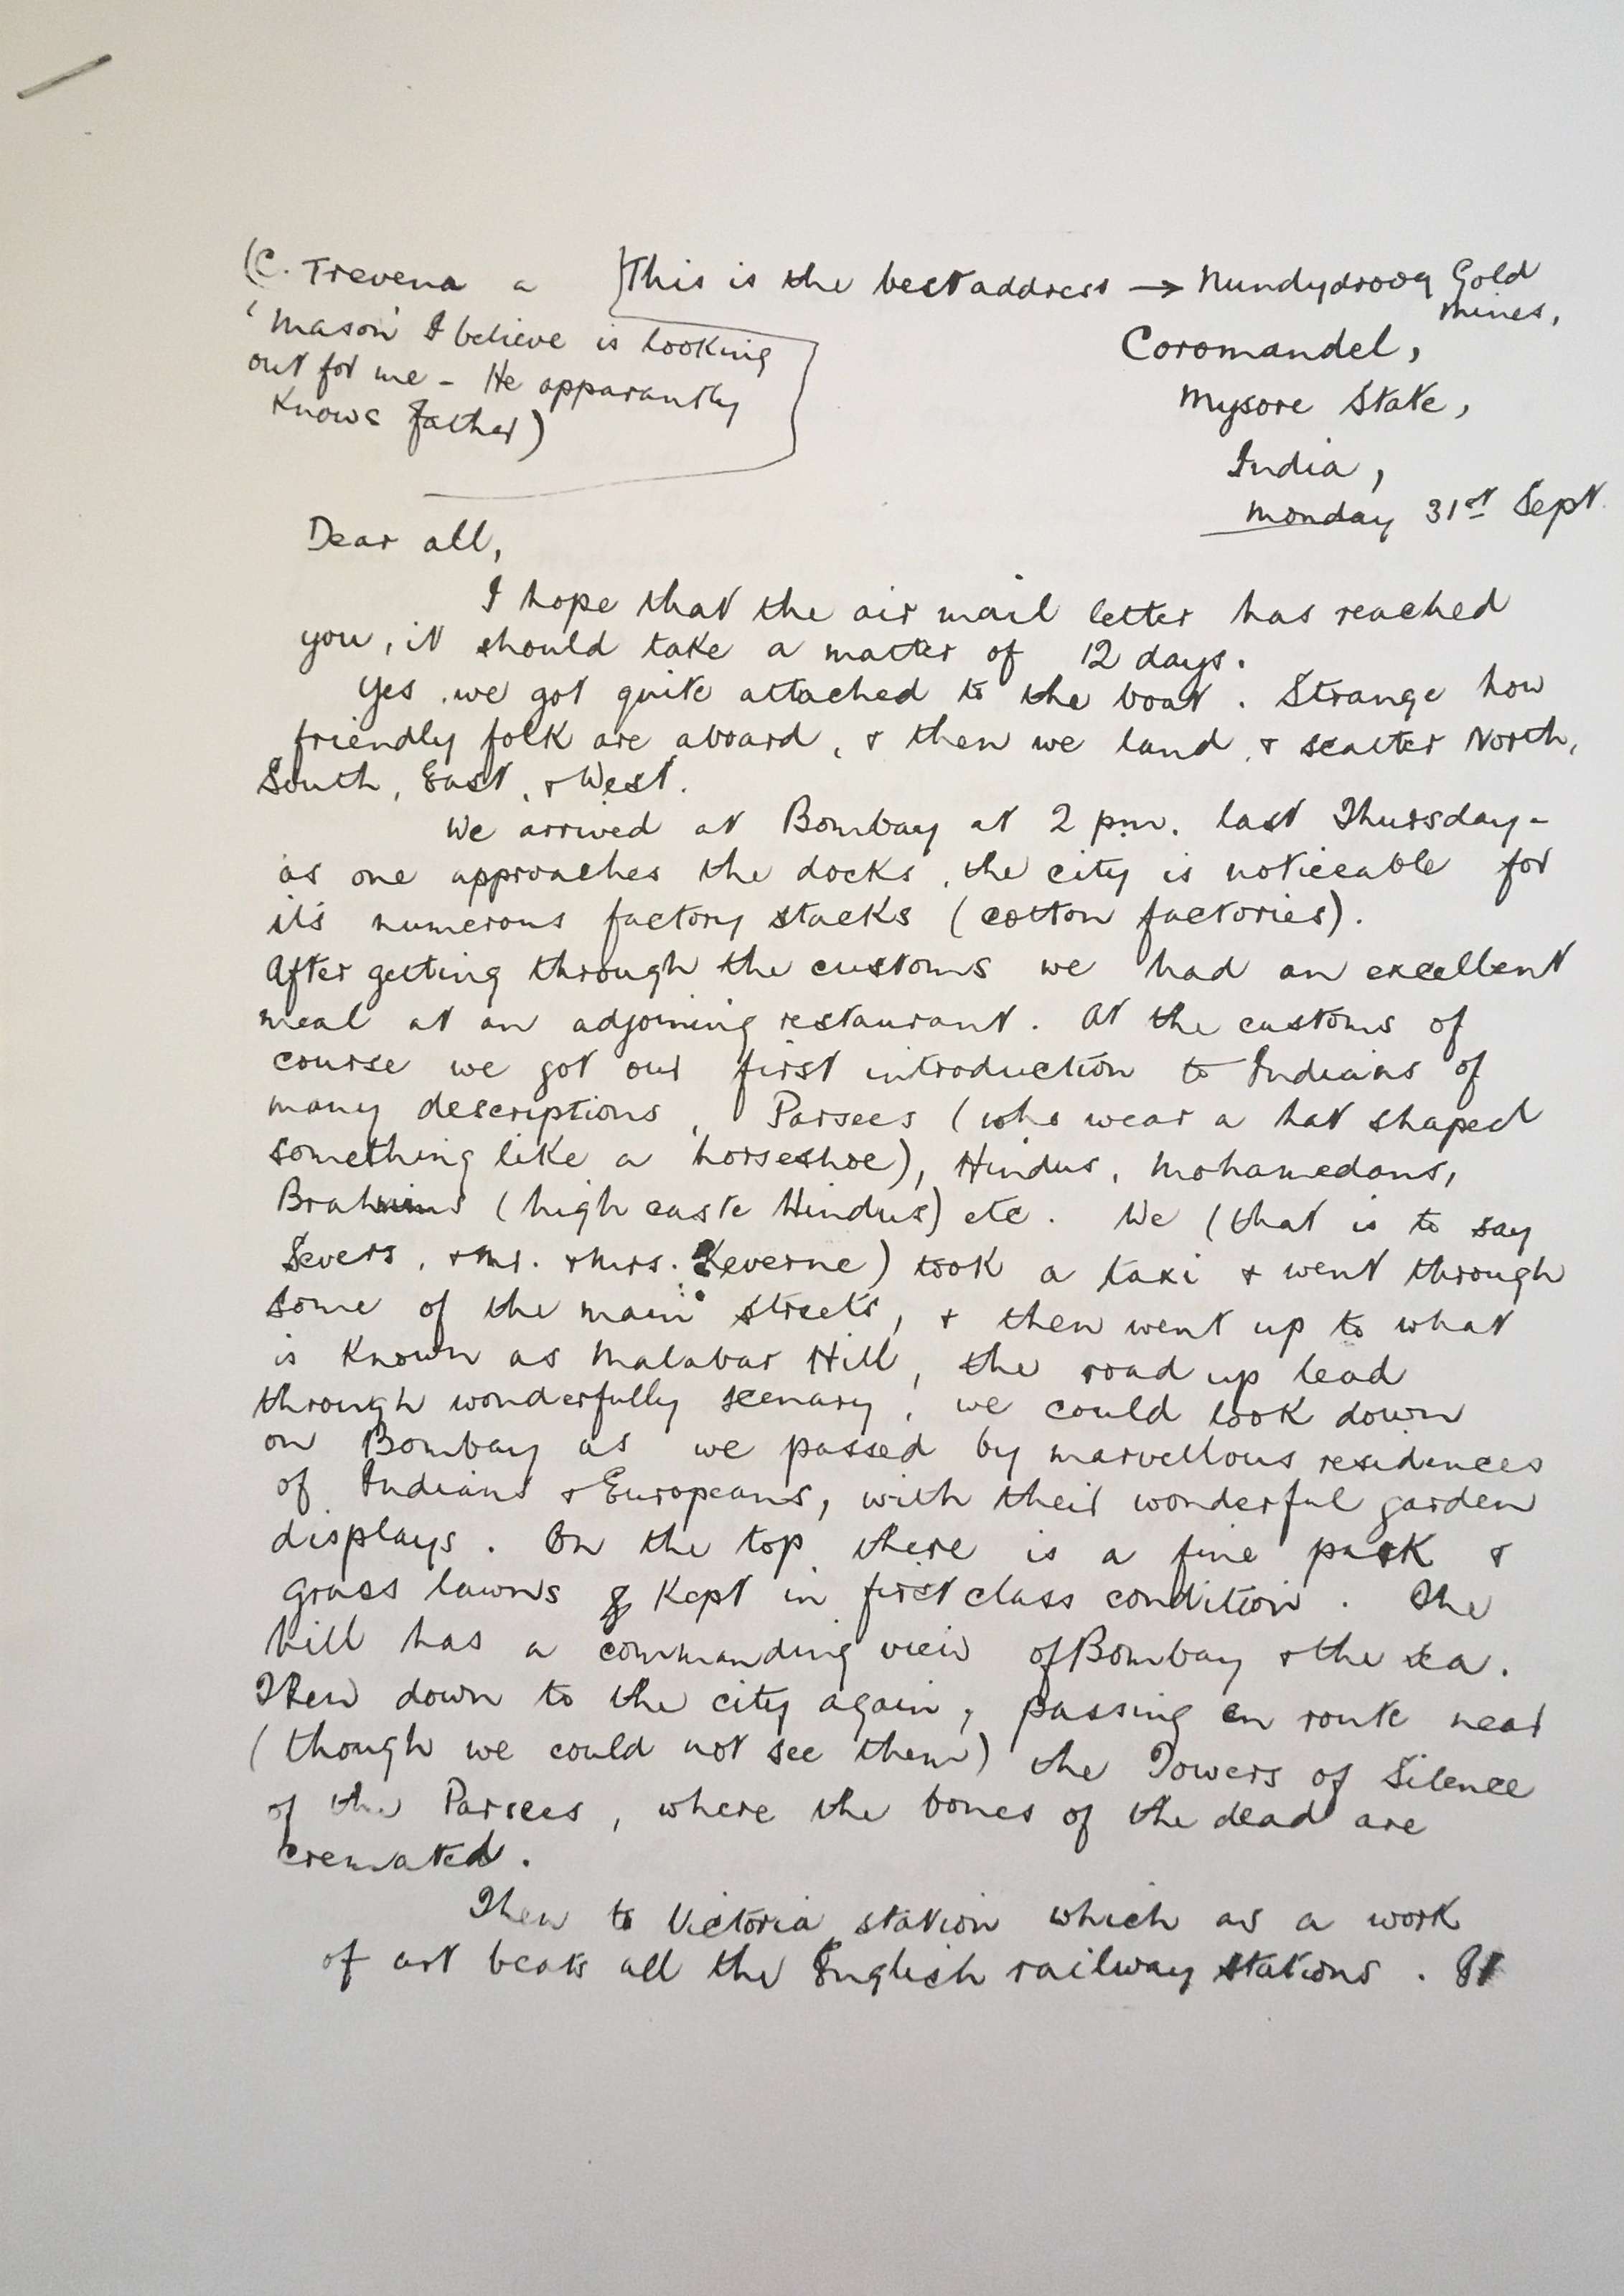 (C. Trevena a
'Mason' I believe is looking
out for me - He apparantly
knows father)
This is the best address → Nundydroog Gold
Mines,
Coromandel,
Mysore State,
India,
Monday 31st Sept.
Dear all,
I hope that the air mail letter has reached
you, it should take a matter of 12 days.
Yes, we got quite attached to the boat. Strange how
friendly folk are aboard, & then we land, & scatter North,
South, East, & West.
We arrived at Bombay at 2 pm. last Thursday -
as one approaches the docks, the city is noticeable for
it's numerous factory stacks (cotton factories).
After getting through the customs we had an excellent
meal at an adjoining restaurant. At the customs of
course we got our first introduction to Indians of
many descriptions, Parsees (who wear a hat shaped
something like a horseshoe), Hindus, Mohamedans,
Brahmins (high caste Hindus) etc. We (that is to say
Severs, & Mr. & Mrs. Keverne) took a taxi & went through
some of the main streets, & then went up to what
is known as Malabar Hill, the road up lead
through wonderfully scenary, we could look down
on Bombay as we passed by marvellous residences
of Indians & Europeans, with their wonderful garden
displays. On the top there is a fine park &
grass lawns & kept in first class condition. The
hill has a commanding view of Bombay & the sea.
Then down to the city again, passing en route near
(though we could not see them) the Towers of Silence
of the Parsees, where the bones of the dead are
cremated.
Then to Victoria station which as a work
of art beats all the English railway stations.